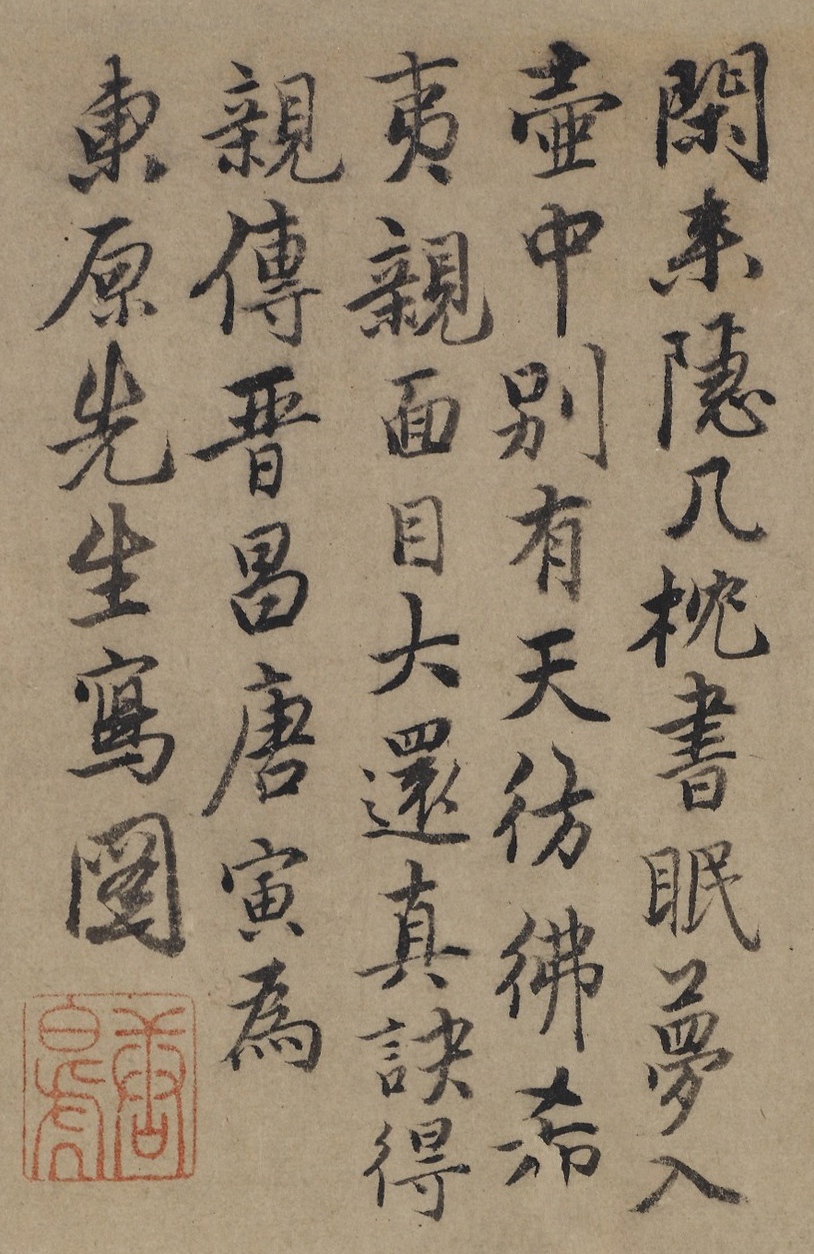 閑来隱几枕書眠夢入
壺中別有天彷彿希
夷親面目大還真訣得
親傳晋昌唐寅為
東原先生寫圖
唐白虎